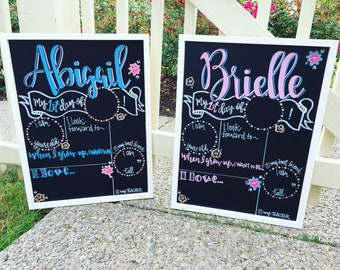 Abigail
My 1st day of
I am
I look
forward to...
years old
my best friend
is
When I grow up, I want to be
I am
tall
I Love...
is my TEACHER
Brielle
My 1st day of
I am
I look
forward to...
years old
my best friend
is
When I grow up, I want to be
I am
tall
I Love...
is my TEACHER